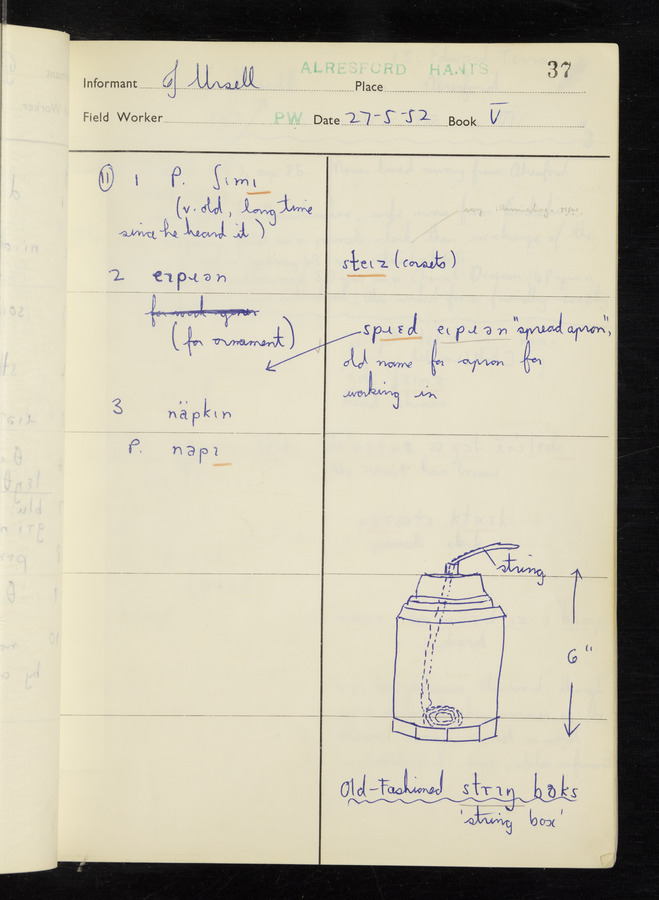 ALRESFORD HANTS 37
Informant G Ursell Place
Field Worker PW Date 27-5-52 Book V
(11) 1 P. ʃɪmɪ
(v. old, long time
since he heard it)
steɪz (corsets)
2 eɪpɹən
(for ornament)
spɹɛd eɪpɹən "spread apron",
old name for apron for
working in
3 näpkɪn
P. napɪ
string
6"
Old-Fashioned stɹɪŋ bɒks
'string box'